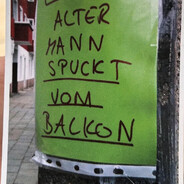 ALTER
MANN
SPUCKT
VOM
BALKON